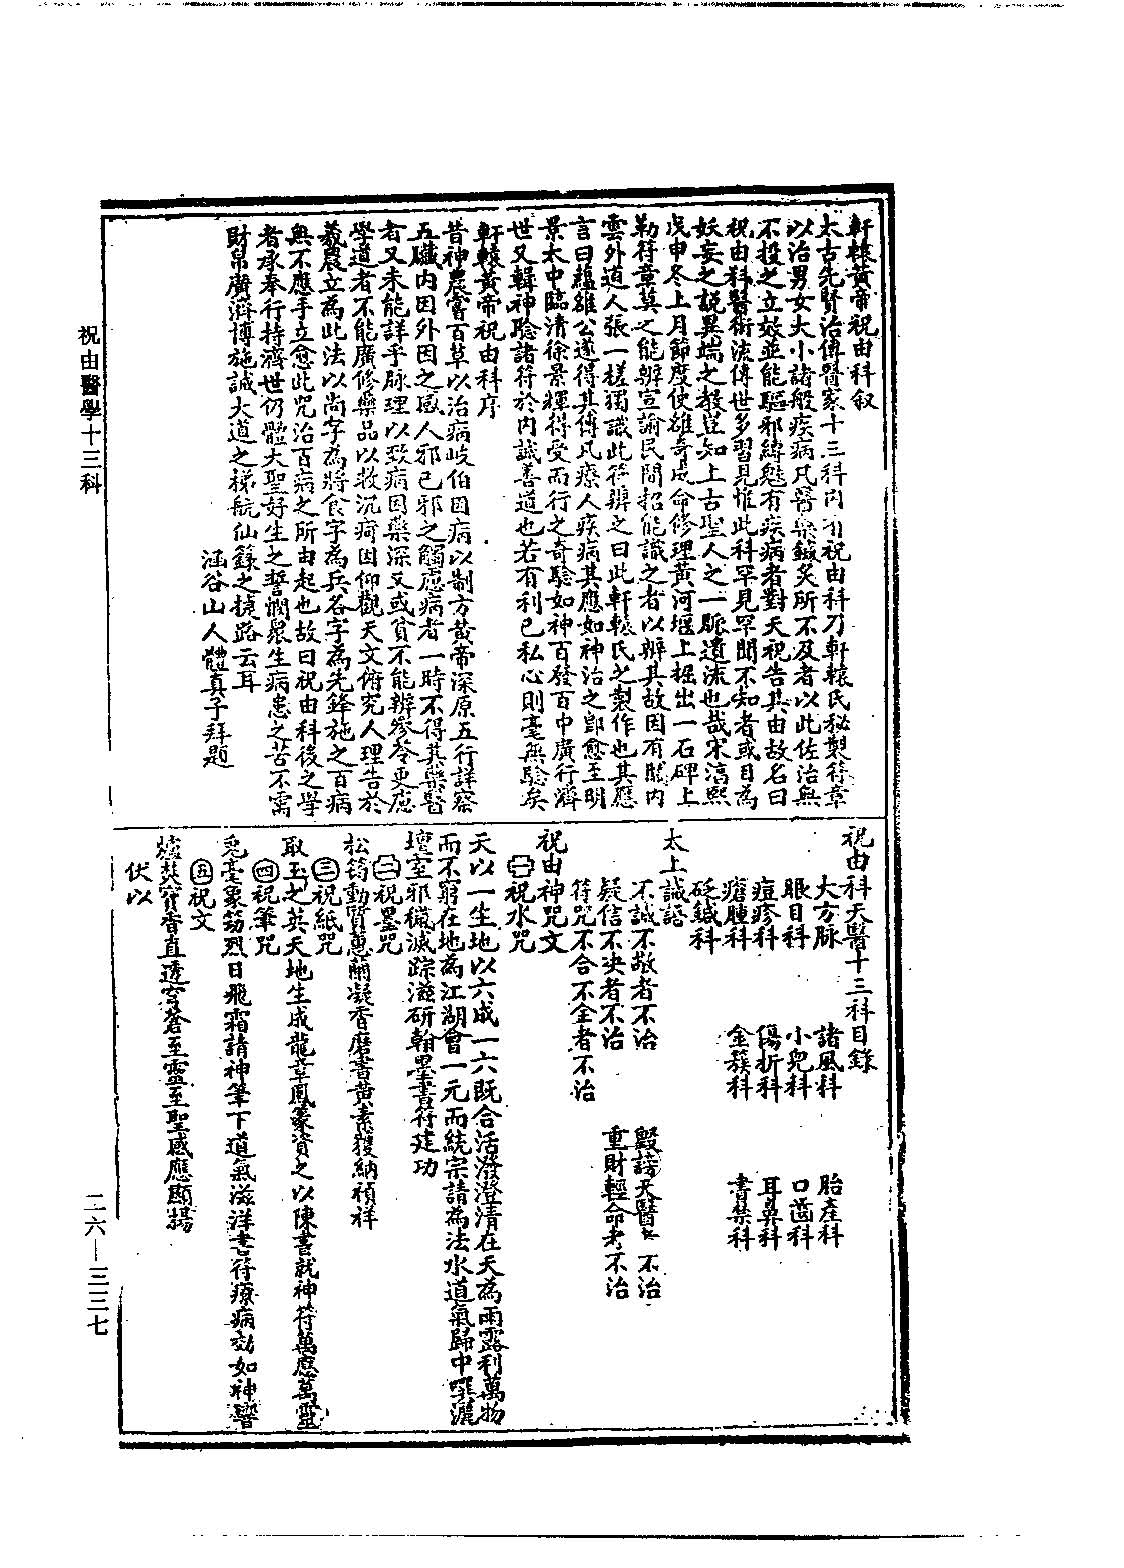 軒轅黃帝祝由科叙
太古先賢治傳醫家十三科內有祝由科乃軒轅氏秘製符章
以治男女大小諸般疾病凡醫藥鍼灸所不及者以此佐治無
不投之立效並能驅邪縛魅有疾病者對天祝告其由故名曰
祝由科醫術流傳世多習見惟此科罕見罕聞不知者或目為
妖妄之說異端之教豈知上古聖人之一脈遺流也哉宋淳熙
戊申冬上月節度使雄奇成命修理黃河堰上掘出一石碑上
勒符章莫之能辨宣諭民間招能識之者以辨其故因有關內
雲外道人張一槎獨識此符辨之曰此軒轅氏之製作也其應
言曰蘊雄公遂得其傳凡療人疾病其應如神治之卽愈至明
景太中臨清徐景輝得受而行之奇驗如神百發百中廣行濟
世又輯神驗諸符於內誠善道也若有利己私心則毫無驗矣
軒轅黃帝祝由科序
昔神農嘗百草以治病岐伯因病以制方黃帝深原五行詳察
五臟內因外因之感人邪己邪之觸慮病者一時不得其藥醫
者又未能詳乎脉理以致病因藥深又或貧不能辨參苓更慮
學道者不能廣修藥品以救沉疴因仰觀天文俯究人理告於
羲農立為此法以尚字為將食字為兵各字為先鋒施之百病
無不應手立愈此咒治百病之所由起也故曰祝由科後之學
者承奉行持濟世仍體大聖好生之誓憫眾生病患之苦不需
財帛廣濟博施誠大道之梯航仙籙之捷路云耳
涵谷山人體真子拜題
祝由科天醫十三科目錄
大方脉 諸風科 胎產科
眼目科 小兒科 口齒科
痘疹科 傷折科 耳鼻科
瘡腫科 金簇科 書禁科
砭鍼科
太上誡語
不誠不敬者不治 毀謗天醫者不治
疑信不决者不治 重財輕命者不治
符咒不合不全者不治
祝由神咒文
㊀祝水咒
天以一生地以六成一六既合活潑澄清在天為雨露利萬物
而不窮在地為江湖會一元而統宗請為法水道氣歸中噀灑
壇室邪穢滅踪滋研翰墨書符建功
㊁祝墨咒
松筠動質蕙蘭凝香磨書黃素獲納禎祥
㊂祝紙咒
取玉之英天地生成龍章鳳篆資之以陳書就神符萬應萬靈
㊃祝筆咒
兎毫象笏烈日飛霜請神筆下道氣滋洋書符療病効如神響
㊄祝文
爐焚寶香直透穹蒼至靈至聖感應顯揚
伏以
祝由醫學十三科
二六—三三七